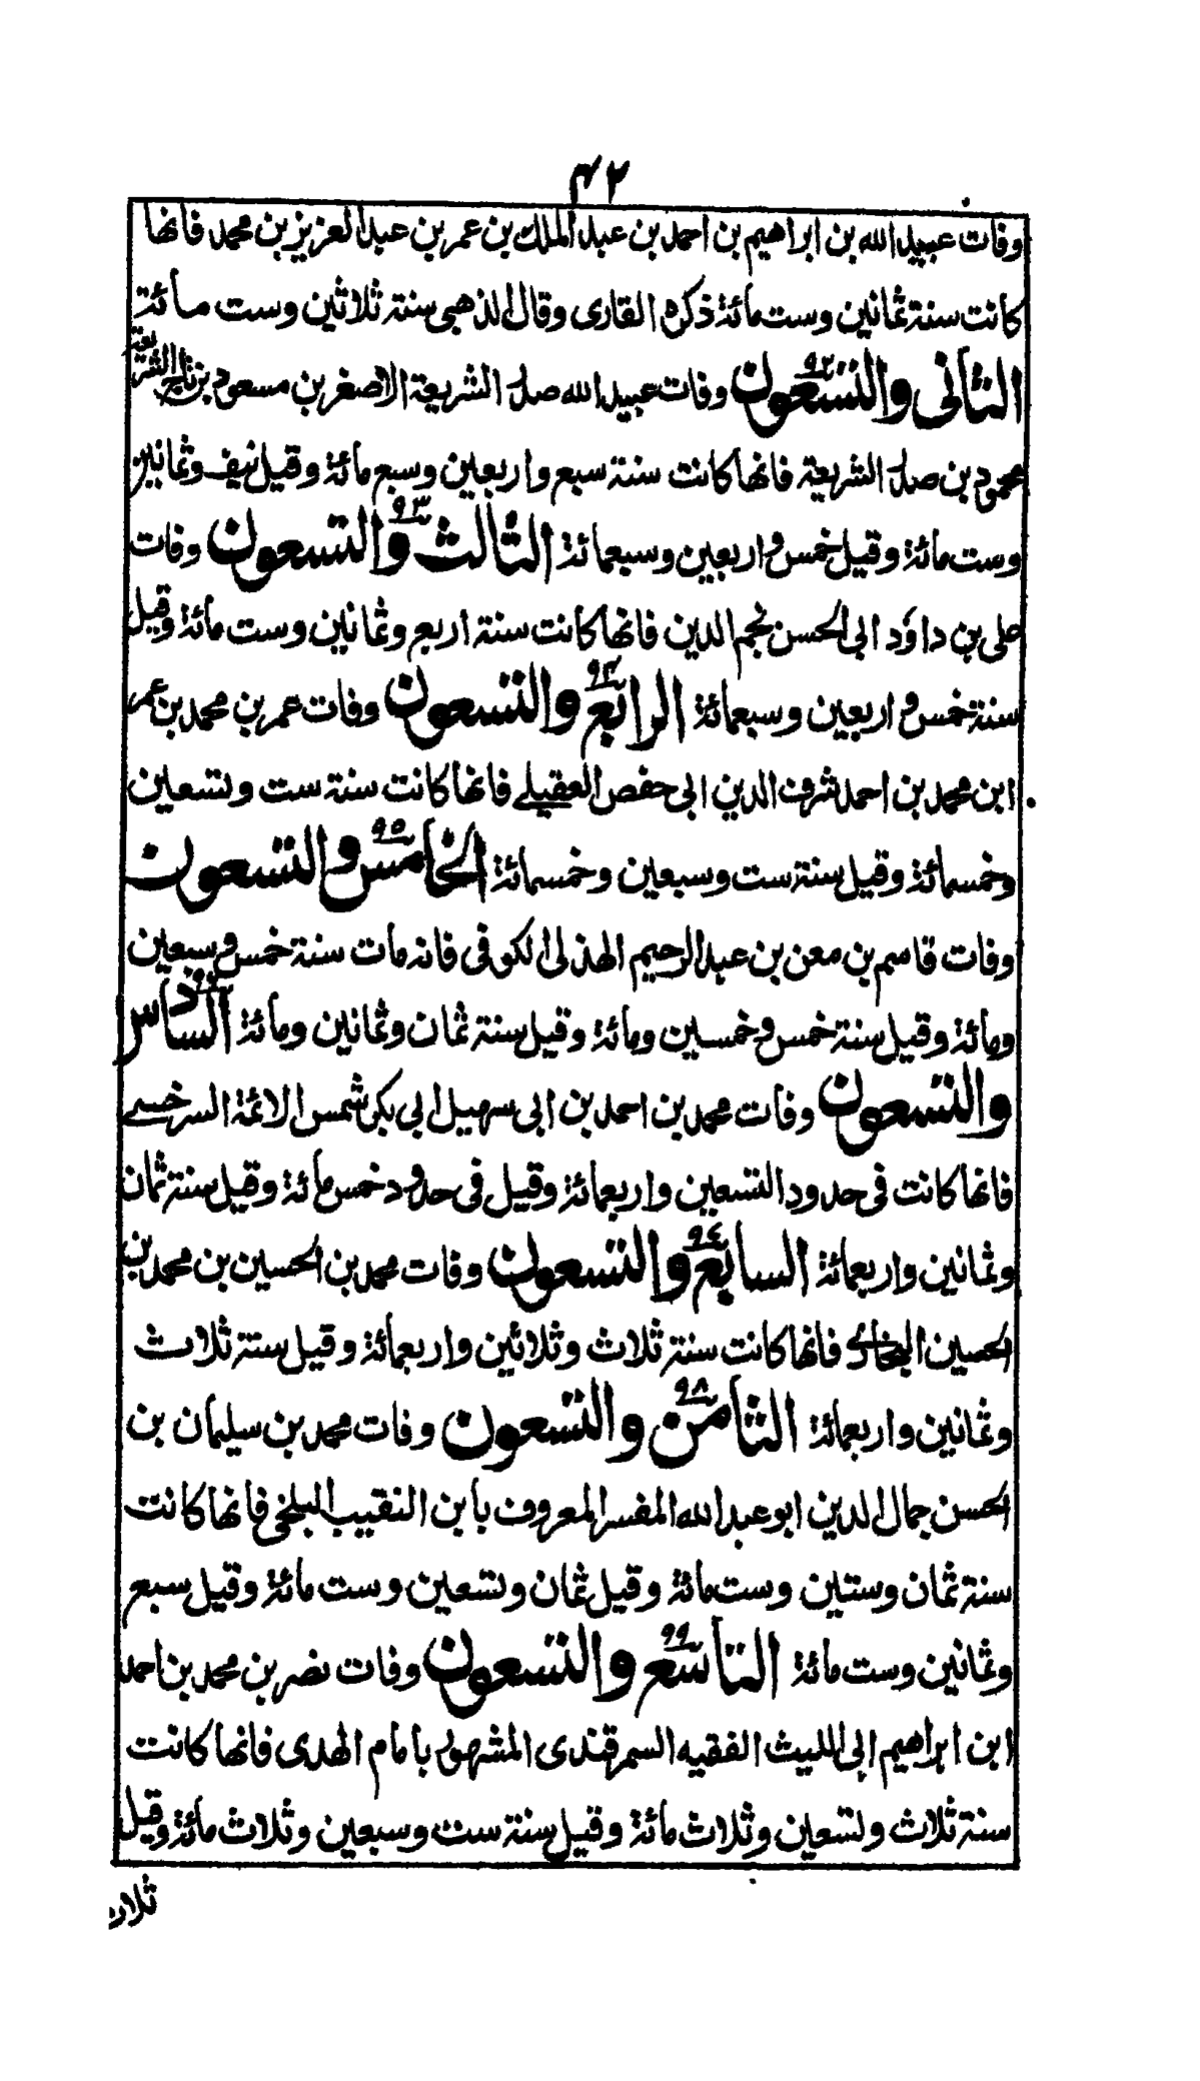 ٤٢
وفات عبيد الله بن ابراهيم بن احمد بن عبد الملك بن عمر بن عبد العزيز بن محمد فانها
كانت سنة ثمانين وست مائة ذكره القارى وقال الذهبى سنة ثلاثين وست مائة
الثانى والتسعون ٩٢ وفات عبيد الله صدر الشريعة الاصغر بن مسعود بن تاج الشريعة
محمود بن صدر الشريعة فانها كانت سنة سبع واربعين وسبع مائة وقيل نيف وثمانين
وست مائة وقيل خمس واربعين وسبعمائة الثالث والتسعون ٩٣ وفات
على بن داود ابى الحسن نجم الدين فانها كانت سنة اربع وثمانين وست مائة وقيل
سنة خمس واربعين وسبعمائة الرابع والتسعون ٩٤ وفات عمر بن محمد بن عمر
ابن محمد بن احمد شرف الدين ابى حفص العقيلے فانها كانت سنة ست وتسعين
وخمسمائة وقيل سنة ست وسبعين وخمسمائة الخامس والتسعون ٩٥
وفات قاسم بن معن بن عبد الرحيم الهذلى الكوفى فانه مات سنة خمس وسبعين
ومائة وقيل سنة خمس وخمسين ومائة وقيل سنة ثمان وثمانين ومائة السادس ٩٦
والتسعون وفات محمد بن احمد بن ابى سهيل ابى بكر شمس الائمة السرخسے
فانها كانت فى حدود التسعين واربعمائة وقيل فى حدود خمس مائة وقيل سنة ثمان
وثمانين واربعمائة السابع والتسعون ٩٧ وفات محمد بن الحسين بن محمد بن
الحسين البخارى فانها كانت سنة ثلاث وثلاثين واربعمائة وقيل سنة ثلاث
وثمانين واربعمائة الثامن والتسعون ٩٨ وفات محمد بن سليمان بن
الحسن جمال الدين ابو عبد الله المفسر المعروف بابن النقيب البلخى فانها كانت
سنة ثمان وستين وست مائة وقيل ثمان وتسعين وست مائة وقيل سبع
وثمانين وست مائة التاسع والتسعون ٩٩ وفات نصر بن محمد بن احمد
ابن ابراهيم ابى الليث الفقيه السمرقندى المشهور بامام الهدى فانها كانت
سنة ثلاث وتسعين وثلاث مائة وقيل سنة ست وسبعين وثلاث مائة وقيل
ثلاث